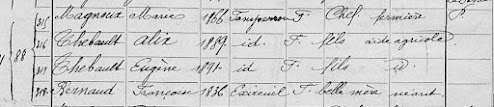 315 Magnoux Marie 1866 F. Chef fermière P
316 Thebault Alix 1889 id F. fils aide agricole
88 317 Thebault Eugène 1891 id F. fils id
Bernaud Françoise 1836 Exireuil F belle mère néant